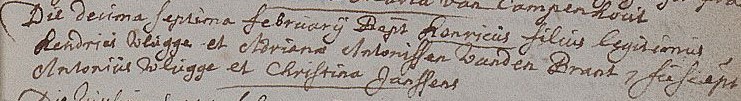 Maria van Campenhout
Die decima septima februarij Bapt Henricus filius legitimus
Hendrici Vlugge et Adriana Antonissen vanden Brant, suscept
Antonius Vlugge et Christina Janssens
Die